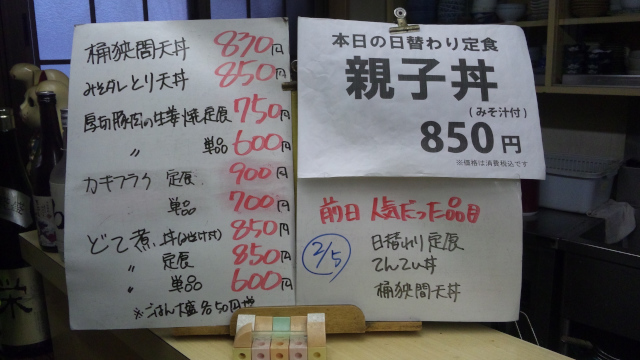 桶狭間天丼 830円
みそダレとり天丼 850円
厚切豚肉の生姜焼定食 750円
〃 単品 600円
カキフライ 定食 900円
単品 700円
どて煮 丼(みそ汁付) 850円
〃 定食 850円
〃 単品 600円
※ごはん大盛各50円増
本日の日替わり定食
親子丼
(みそ汁付)
850円
※価格は消費税込です
前日 人気だった品目
2/5
日替わり定食
てんてい丼
桶狭間天丼
栄